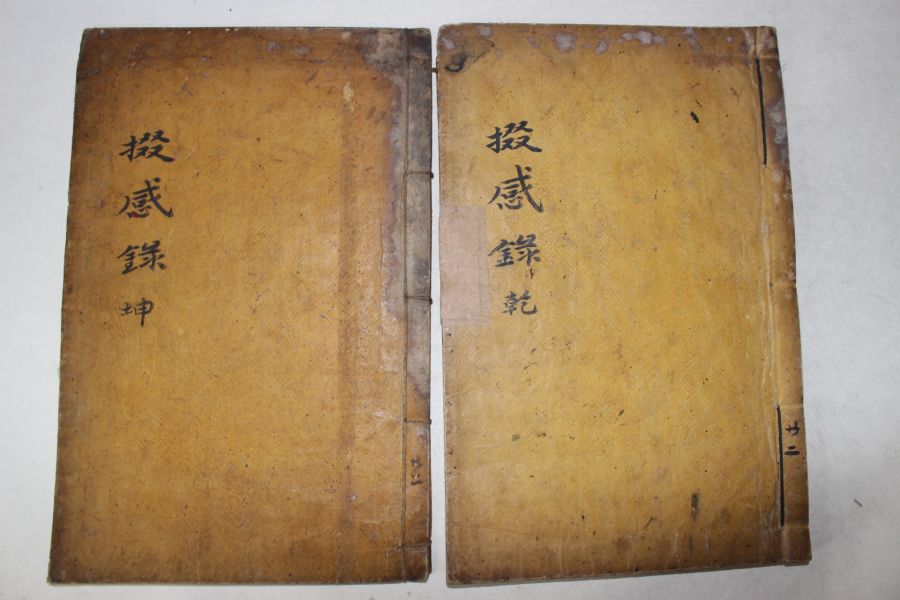 掇感錄乾
廿二
掇感錄坤